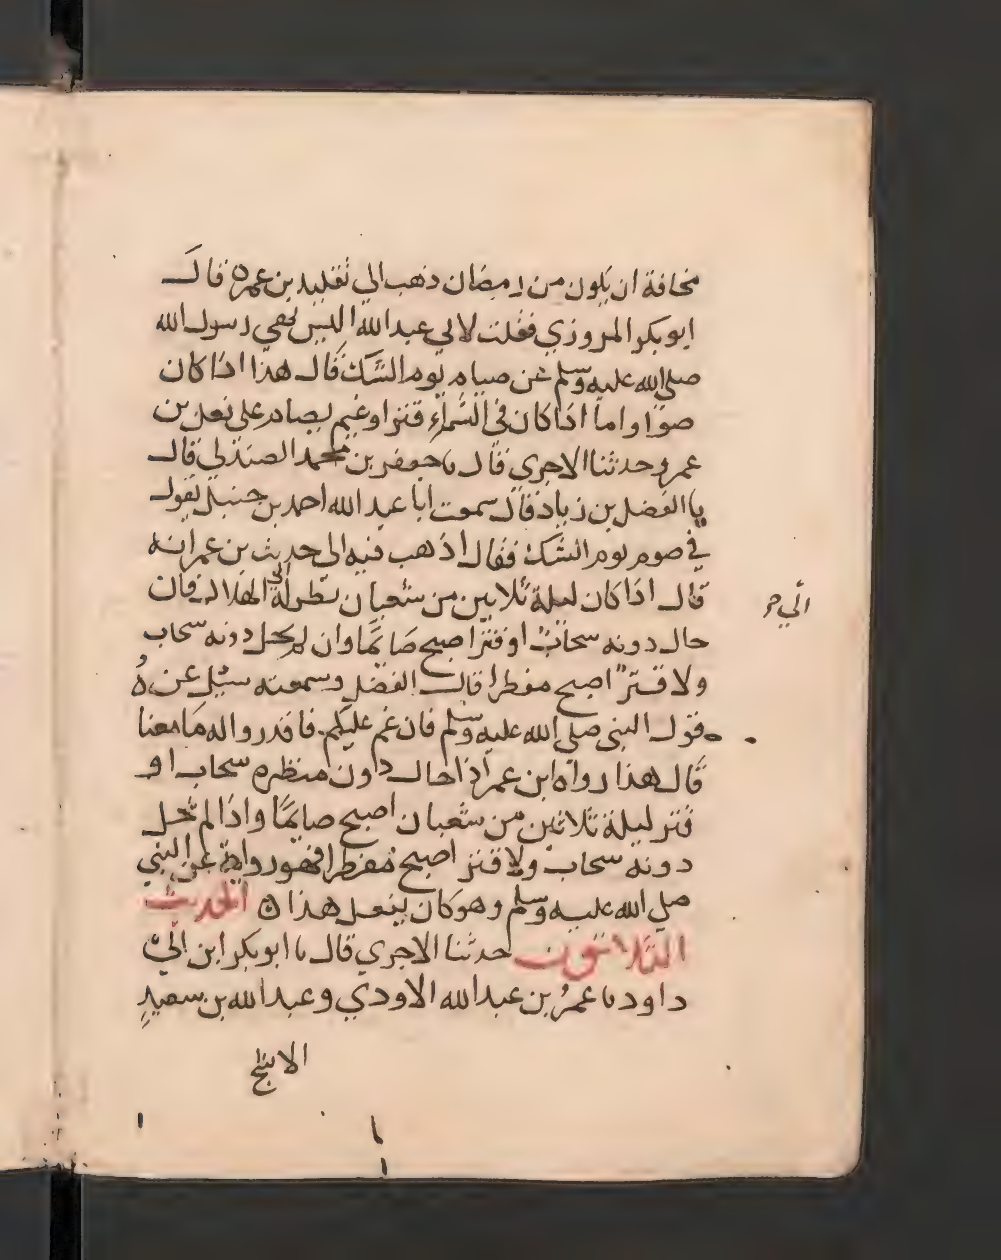 مخافة ان يكون من رمضان ذهب الي تقليد بن عمر ه قال
ابو بكر المروزي فقلت لابي عبد الله اليس نهي رسول الله
صلي الله عليه وسلم عن صيام يوم الشك قال هذا اذا كان
صحوا واما اذا كان في السماء قتر او غيم يصام علي فعل بن
عمر وحدثنا الاجري قال نا جعفر بن محمد الصندلي قال
نا الفضل بن زياد قال سمعت ابا عبد الله احمد بن حنبل يقول
في صوم يوم الشك فقال اذهب فيه الي حديث بن عمر انه
قال اذا كان ليلة ثلاثين من شعبان نظر الي الهلال فان
الي
حال دونه سحاب او قتر اصبح صائما وان لم يحل دونه سحاب
ولا قتر اصبح مفطرا قال الفضل وسمعته سئل عن ه
قول النبي صلي الله عليه وسلم فان غم عليكم فاقدروا له ما معنا
قال هذا رواه ابن عمر اذا حال دون منظره سحاب او
قتر ليلة ثلاثين من شعبان اصبح صائما واذا لم يحل
دونه سحاب ولا قتر اصبح مفطرا فهو رواه عن النبي
صلي الله عليه وسلم وهو كان يفعل هذا ه الحديث
الثلاثون حدثنا الاجري قال نا ابو بكر ابن ابي
داود نا عمر بن عبد الله الاودي وعبد الله بن سعيد
الاشج